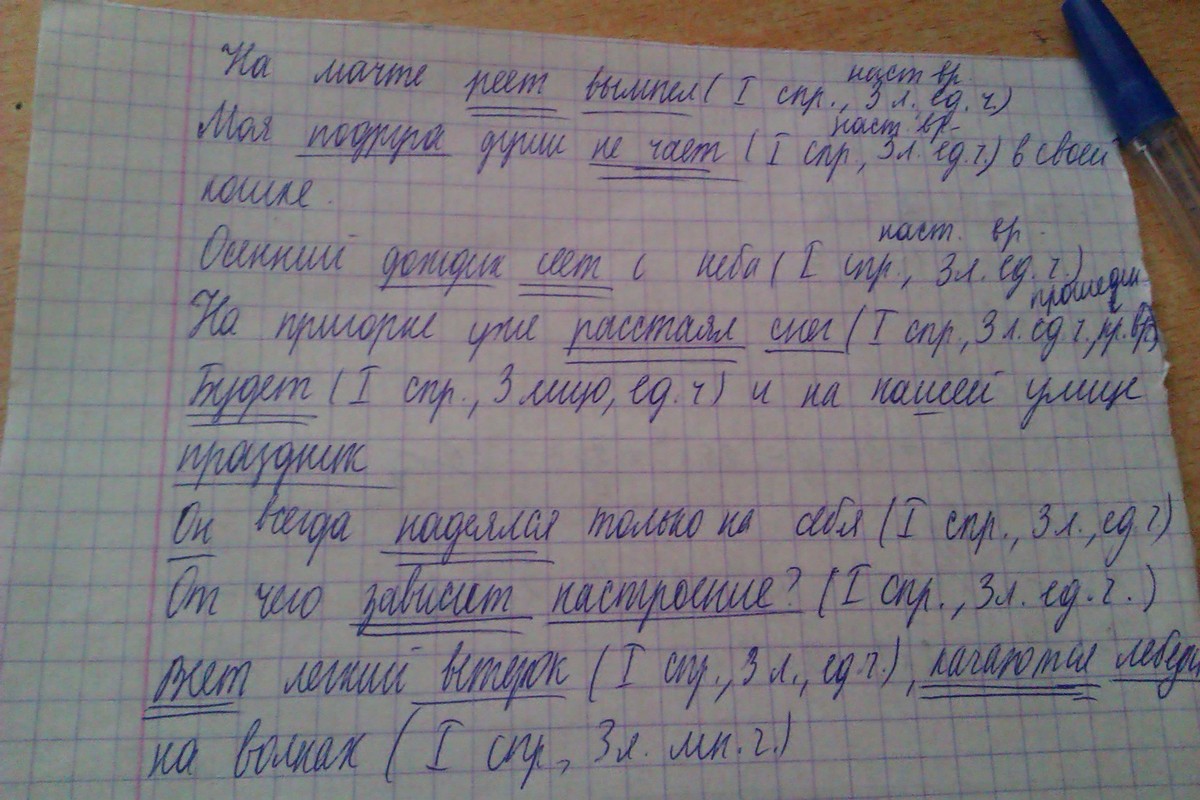 наст вр.
На мачте реет вымпел (I спр., 3 л. ед. ч.)
наст. вр.
Моя подруга души не чает (I спр., 3 л. ед. ч.) в своей
кошке.
наст. вр.
Осенний дождик сеет с неба (I спр., 3 л. ед. ч.)
прошедш
На пригорке уже расстаял снег (I спр., 3 л. ед ч., пр. вр.)
Будет (I спр., 3 лицо, ед. ч) и на нашей улице
праздник
Он всегда надеялся только на себя (I спр., 3 л., ед ч)
От чего зависит настроение? (I спр., 3 л. ед. ч.)
Веет легкий ветерок (I спр., 3 л., ед. ч.), качаются лебеди
на волнах (I спр, 3 л. мн. ч.)